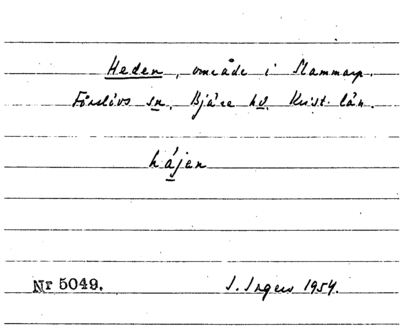 Heden, område i Slammarp.
Förslövs sn. Bjäre hd. Krist. län.
hájen
Nr 5049. I. Ingers 1954.